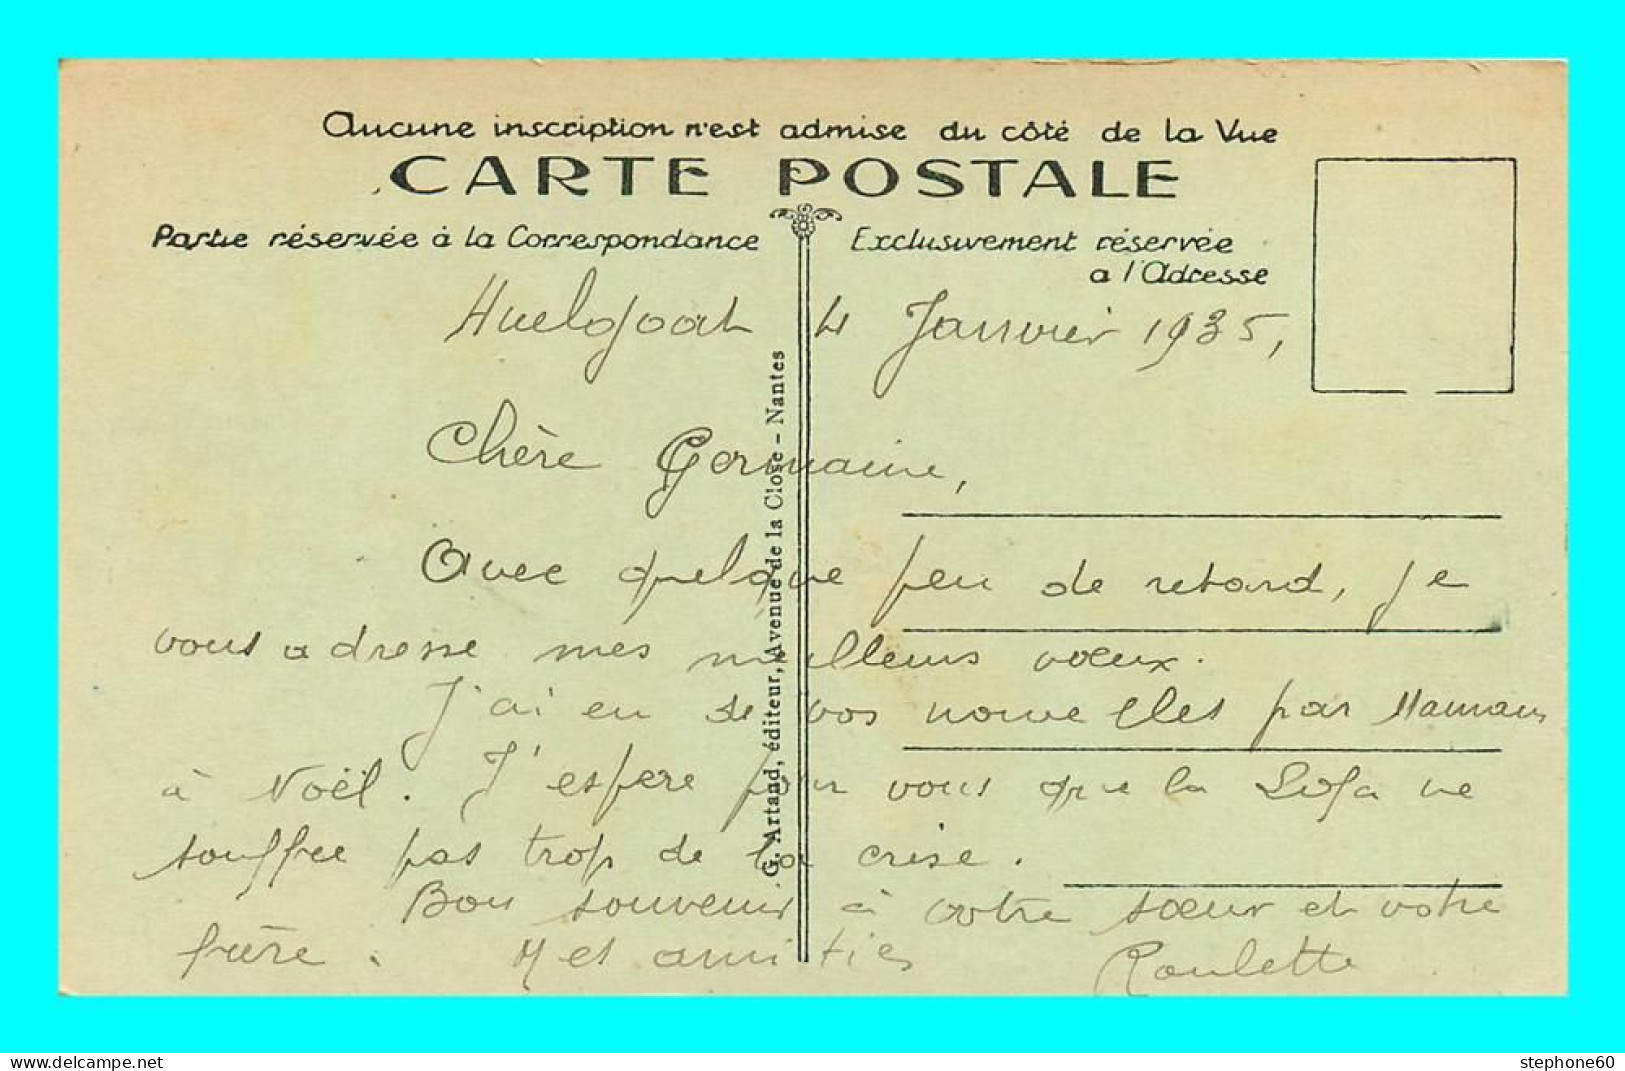 Aucune inscription n'est admise du côté de la Vue
CARTE POSTALE
Partie réservée à la Correspondance
Exclusivement réservée
a l'Adresse
Huelgoat 4 Janvier 1935,
Chère Germaine,
Avec quelque peu de retard, je
vous adresse mes meilleurs voeux.
J'ai eu de vos nouvelles par Maman
à Noël. J'espère pour vous que la Sofa ne
souffre pas trop de la crise.
Bon souvenir à votre soeur et votre
frère. Mes amitiés
Roulette
G. Artaud, éditeur, Avenue de la Close - Nantes
www.delcampe.net
stephone60